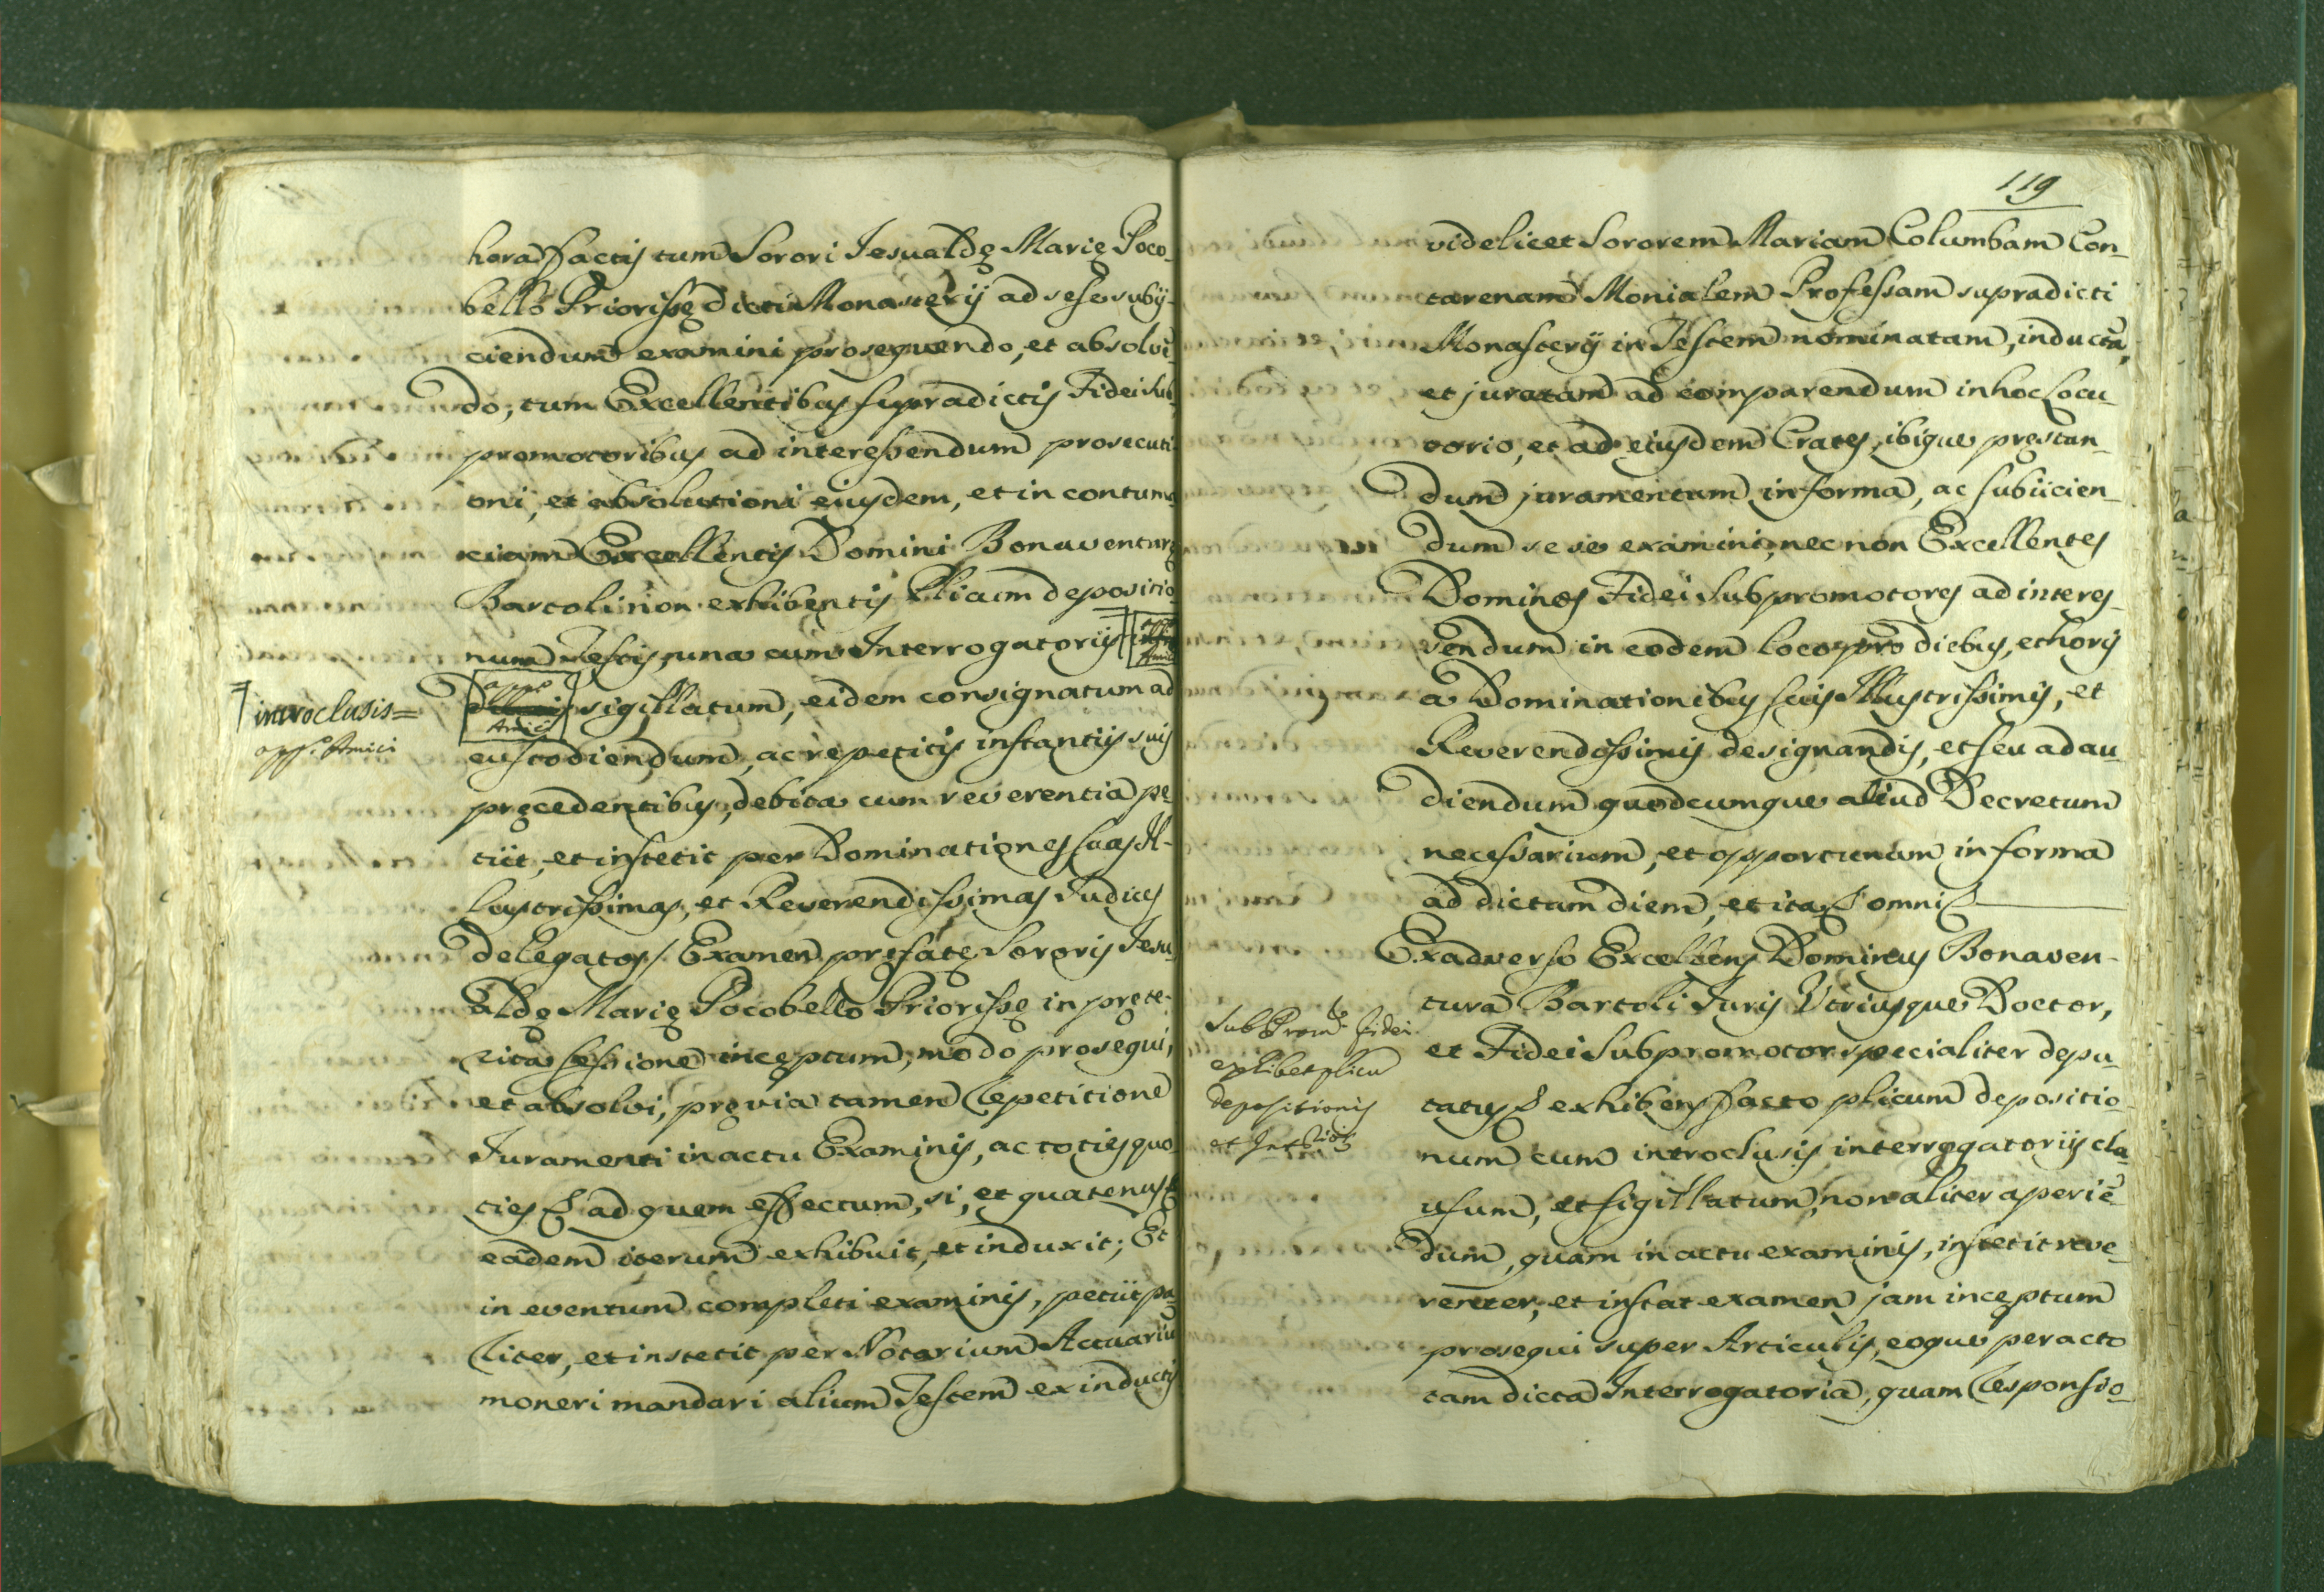 hora factis tum Sorori Jesualdę Marię Poco-
bello Priorissę dicti Monasterij ad sese subij-
ciendum examini prosequendo, et absolvẽ-
do, tum Excellentibus supradictis Fidei Sub-
promotoribus ad interessendum prosecuti-
oni, et absolutioni eiusdem, et in contuma-
ciam Excellentis Domini Bonaventurę
Bartoli non exhibentis Pliacum depositio-
num Testis, una cum Interrogatorijs
sigillatum, eidem consignatum ad
custodiendum, ac repetitis instantijs suis
pręcedentibus, debita cum reverentia pe-
tijt, et institit per Dominationes suas Il-
lustrissimas, et Reverendissimas Judices
Delegatos / Examen prefatę Sororis Jesu-
aldę Marię Pocobello Priorissę in prete-
rita sessione inceptum, modo prosequi,
et absolvi, pręvia tamen repetitione
Juramenti in actu Examinis, ac toties quo-
ties & ad quem effectum, si, et quatenus &
eadem iterum exhibuit, et induxit; Et
in eventum completi examinis, petijt pa-
riter, et institit per Notarium Actuariũ
moneri mandari alium Testem ex inductis
introclusis =
app.º Amici
119
videlicet Sororem Mariam Columbam Con-
tarenam Monialem Professam supradicti
Monasterij in Testem nominatam, inductã,
et juratam ad comparendum in hoc Locu-
torio, et ad eiusdem Crates, ibique prestan-
dum juramentum in forma, ac subijcien-
dum sese examini, nec non Excellentes
Dominos Fidei Subpromotores ad interes-
sendum in eodem loco pro diebus, et horis
a Dominationibus suis Illustrissimis, et
Reverendissimis designandis, et seu ad au-
diendum quodcumque aliud Decretum
necessarium, et opportunum in forma
ad dictam diem, et ita & omni &
Ex adverso Excellens Dominus Bonaven-
tura Bartoli Juris Utriusque Doctor,
et Fidei Subpromotor specialiter depu-
tatus & exhibens facto plicum depositio-
num cum introclusis interrogatorijs cla-
usum, et sigillatum, non aliter aperiẽ-
dum, quam in actu examinis, institit reve-
renter, et instat examen jam inceptum
prosequi super Articulis, eoque peracto
tam dicta Interrogatoria, quam responsio-
Sub Prom.r Fidei
exhibet plicũ
depositionis